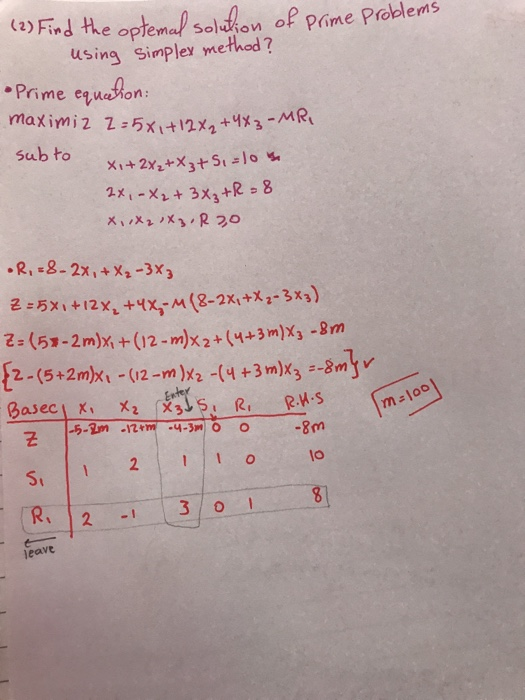 (2) Find the optemal solution of Prime Problems
using simplex method?
• Prime equation:
maximiz Z = 5x₁ + 12x₂ + 4x₃ - MR₁
sub to
x₁ + 2x₂ + x₃ + S₁ = 10
2x₁ - x₂ + 3x₃ + R = 8
x₁, x₂, x₃, R ≥ 0
• R₁ = 8 - 2x₁ + x₂ - 3x₃
Z = 5x₁ + 12x₂ + 4x₃ - M(8 - 2x₁ + x₂ - 3x₃)
Z = (5 - 2m)x₁ + (12 - m)x₂ + (4 + 3m)x₃ - 8m
{Z - (5 + 2m)x₁ - (12 - m)x₂ - (4 + 3m)x₃ = -8m} ✓
Enter
Basec X₁ X₂ X₃ ↓ S₁ R₁ R.H.S
m = 100
Z -5-2m -12+m -4-3m 0 0 -8m
S₁ 1 2 1 1 0 10
R₁ 2 -1 3 0 1 8
← leave